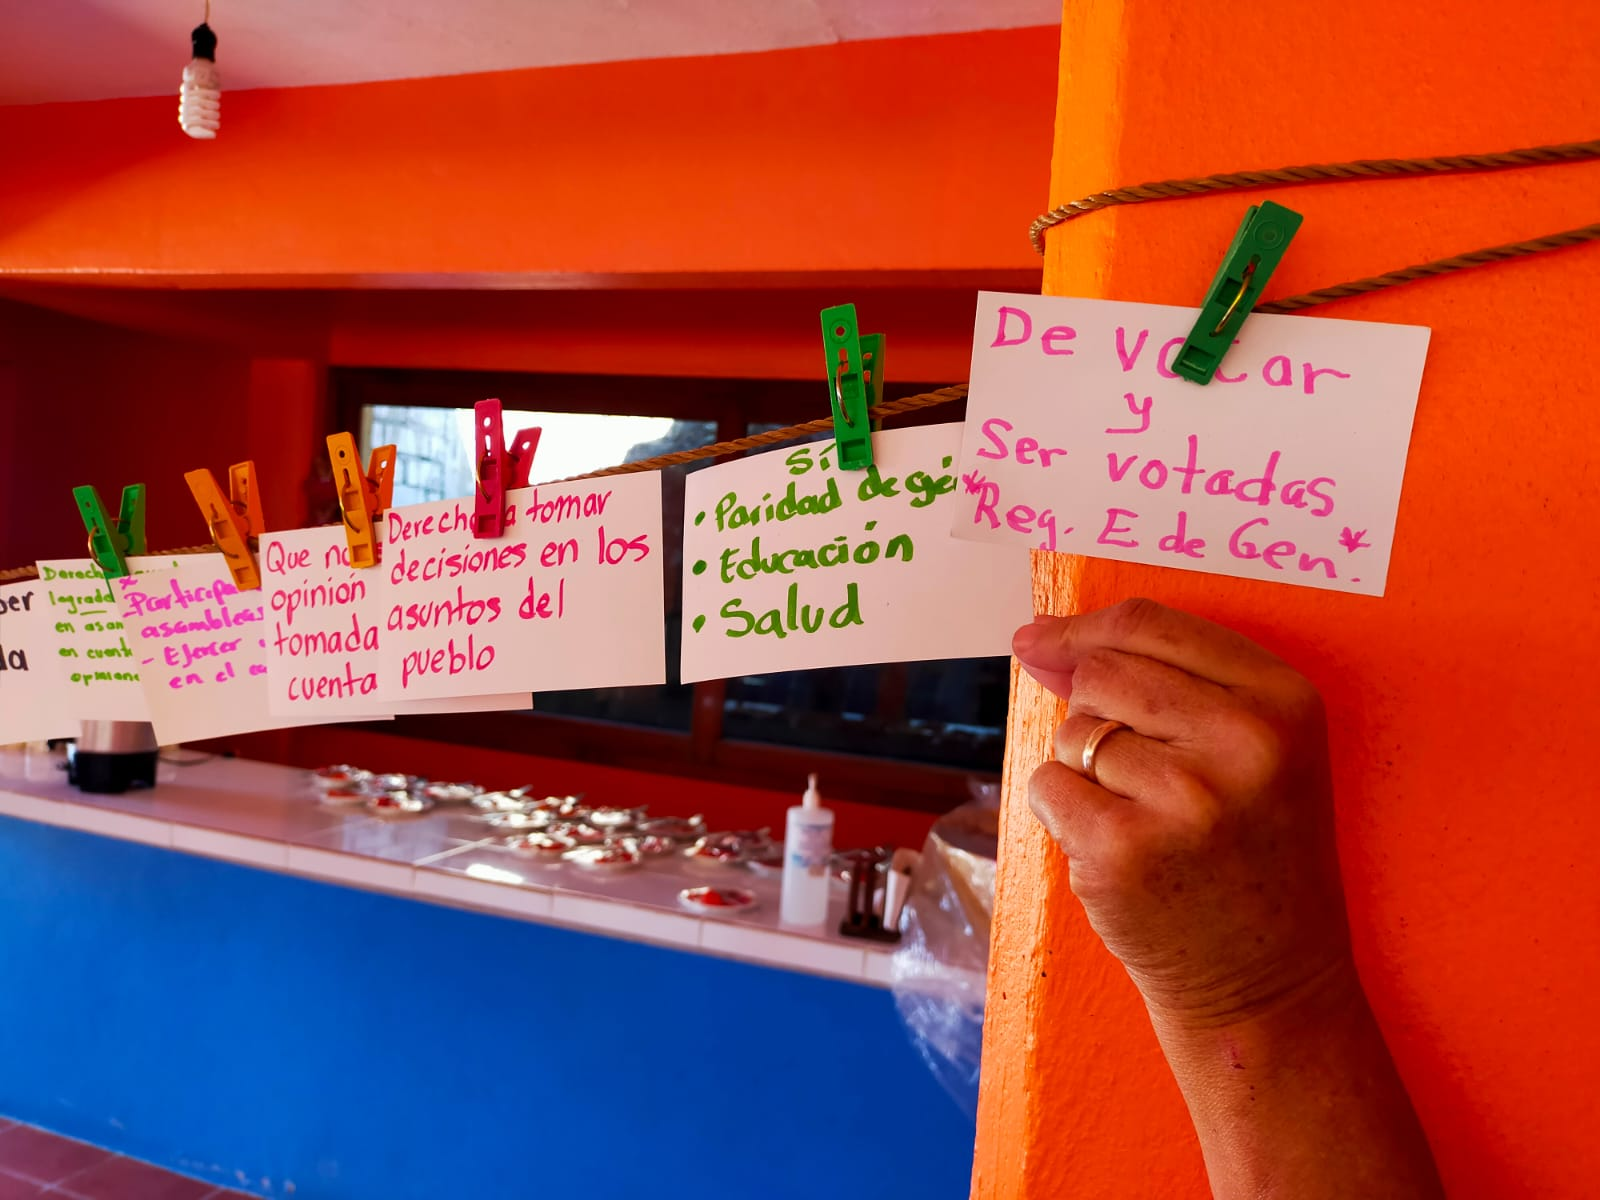 Derecho
lograd
en asam
en cuent
opinion
Participa
asambleas
- Ejercer
en el ca
Que no
opinión
tomada
cuenta
Derecho a tomar
decisiones en los
asuntos del
pueblo
Sí
• Paridad de gé
• Educación
• Salud
De votar
y
Ser votadas
*Reg. E de Gen.*